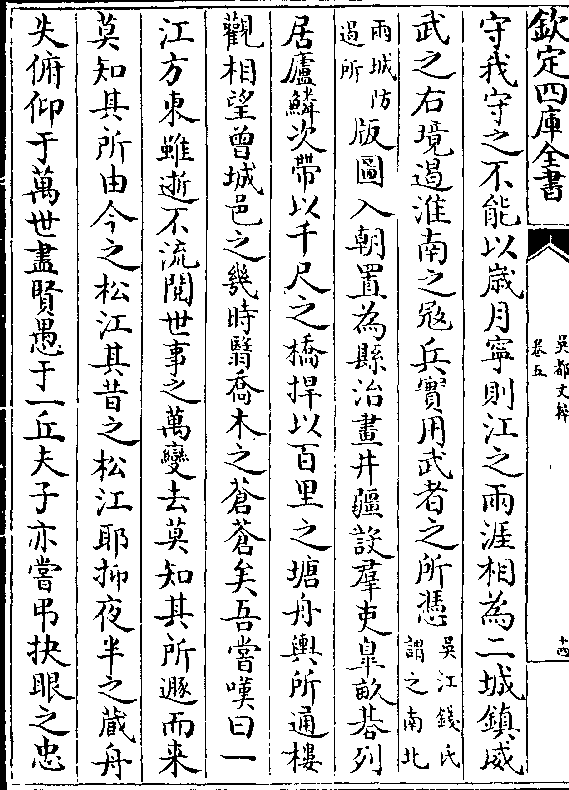 欽定四庫全書
吳都文粹
卷五
十四
守我守之不能以歲月寧則江之兩涯相為二城鎮威
武之右境遏淮南之冦兵實用武者之所憑吳江錢氏謂之南北
兩城防遏所版圖入朝置為縣治畫井疆設羣吏臯畝碁列
居廬鱗次帶以千尺之橋捍以百里之塘舟輿所通樓
觀相望曾城邑之幾時翳喬木之蒼蒼矣吾嘗嘆曰一
江方東雖逝不流閱世事之萬變去莫知其所遯而来
莫知其所由今之松江其昔之松江耶抑夜半之蔵舟
失俯仰于萬世盡賢愚于一丘夫子亦嘗弔抉眼之忠